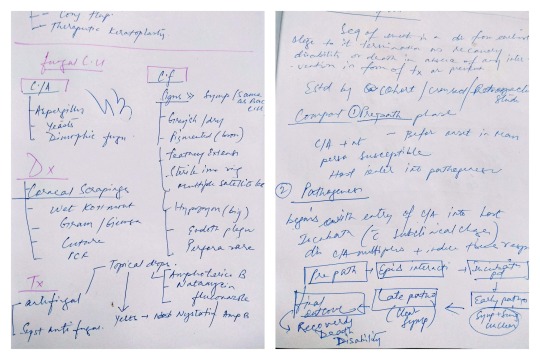 - Cong flap
- Therapeutic Keratoplasty
fungal C.U
C/A
C.f
Aspergillus
Yeasts
Dimorphic fungi
Signs >> Symp / Same as Bac C.U
Greyish / dry
Pigmented (brown)
Feathery Extens
Sterile imm ring
multiple satellite les
Hypopyon (big)
Endoth plaque
Perfora rare
Dx
Corneal Scrapings
Wet KOH mount
Gram / Giemsa
Culture
PCR
Tx
antifungal
Topical drops
Amphotericin B
Natamycin
fluconazole
Syst antifungal
Yeast → Nystatin / Amp B
Seq of event in a dis from earliest
stage to it termination as recovery
disability or death in absence of any inter
-vention in form of tx or
Estd by cohort / cross / Retrospective
Compon ① Prepath phase
C/A + nt - Before onset in man
person susceptible
Host enter into pathogenesis
② Pathogenesis
begins with entry of C/A into host
Incubatn (- Subclinical change)
C/A multiplies + induce
Pre path → Epid interacti → Incubat pd
Final outcome ← Late patho (Clear Symp) ← Early patho
Recovery
Death
Disability